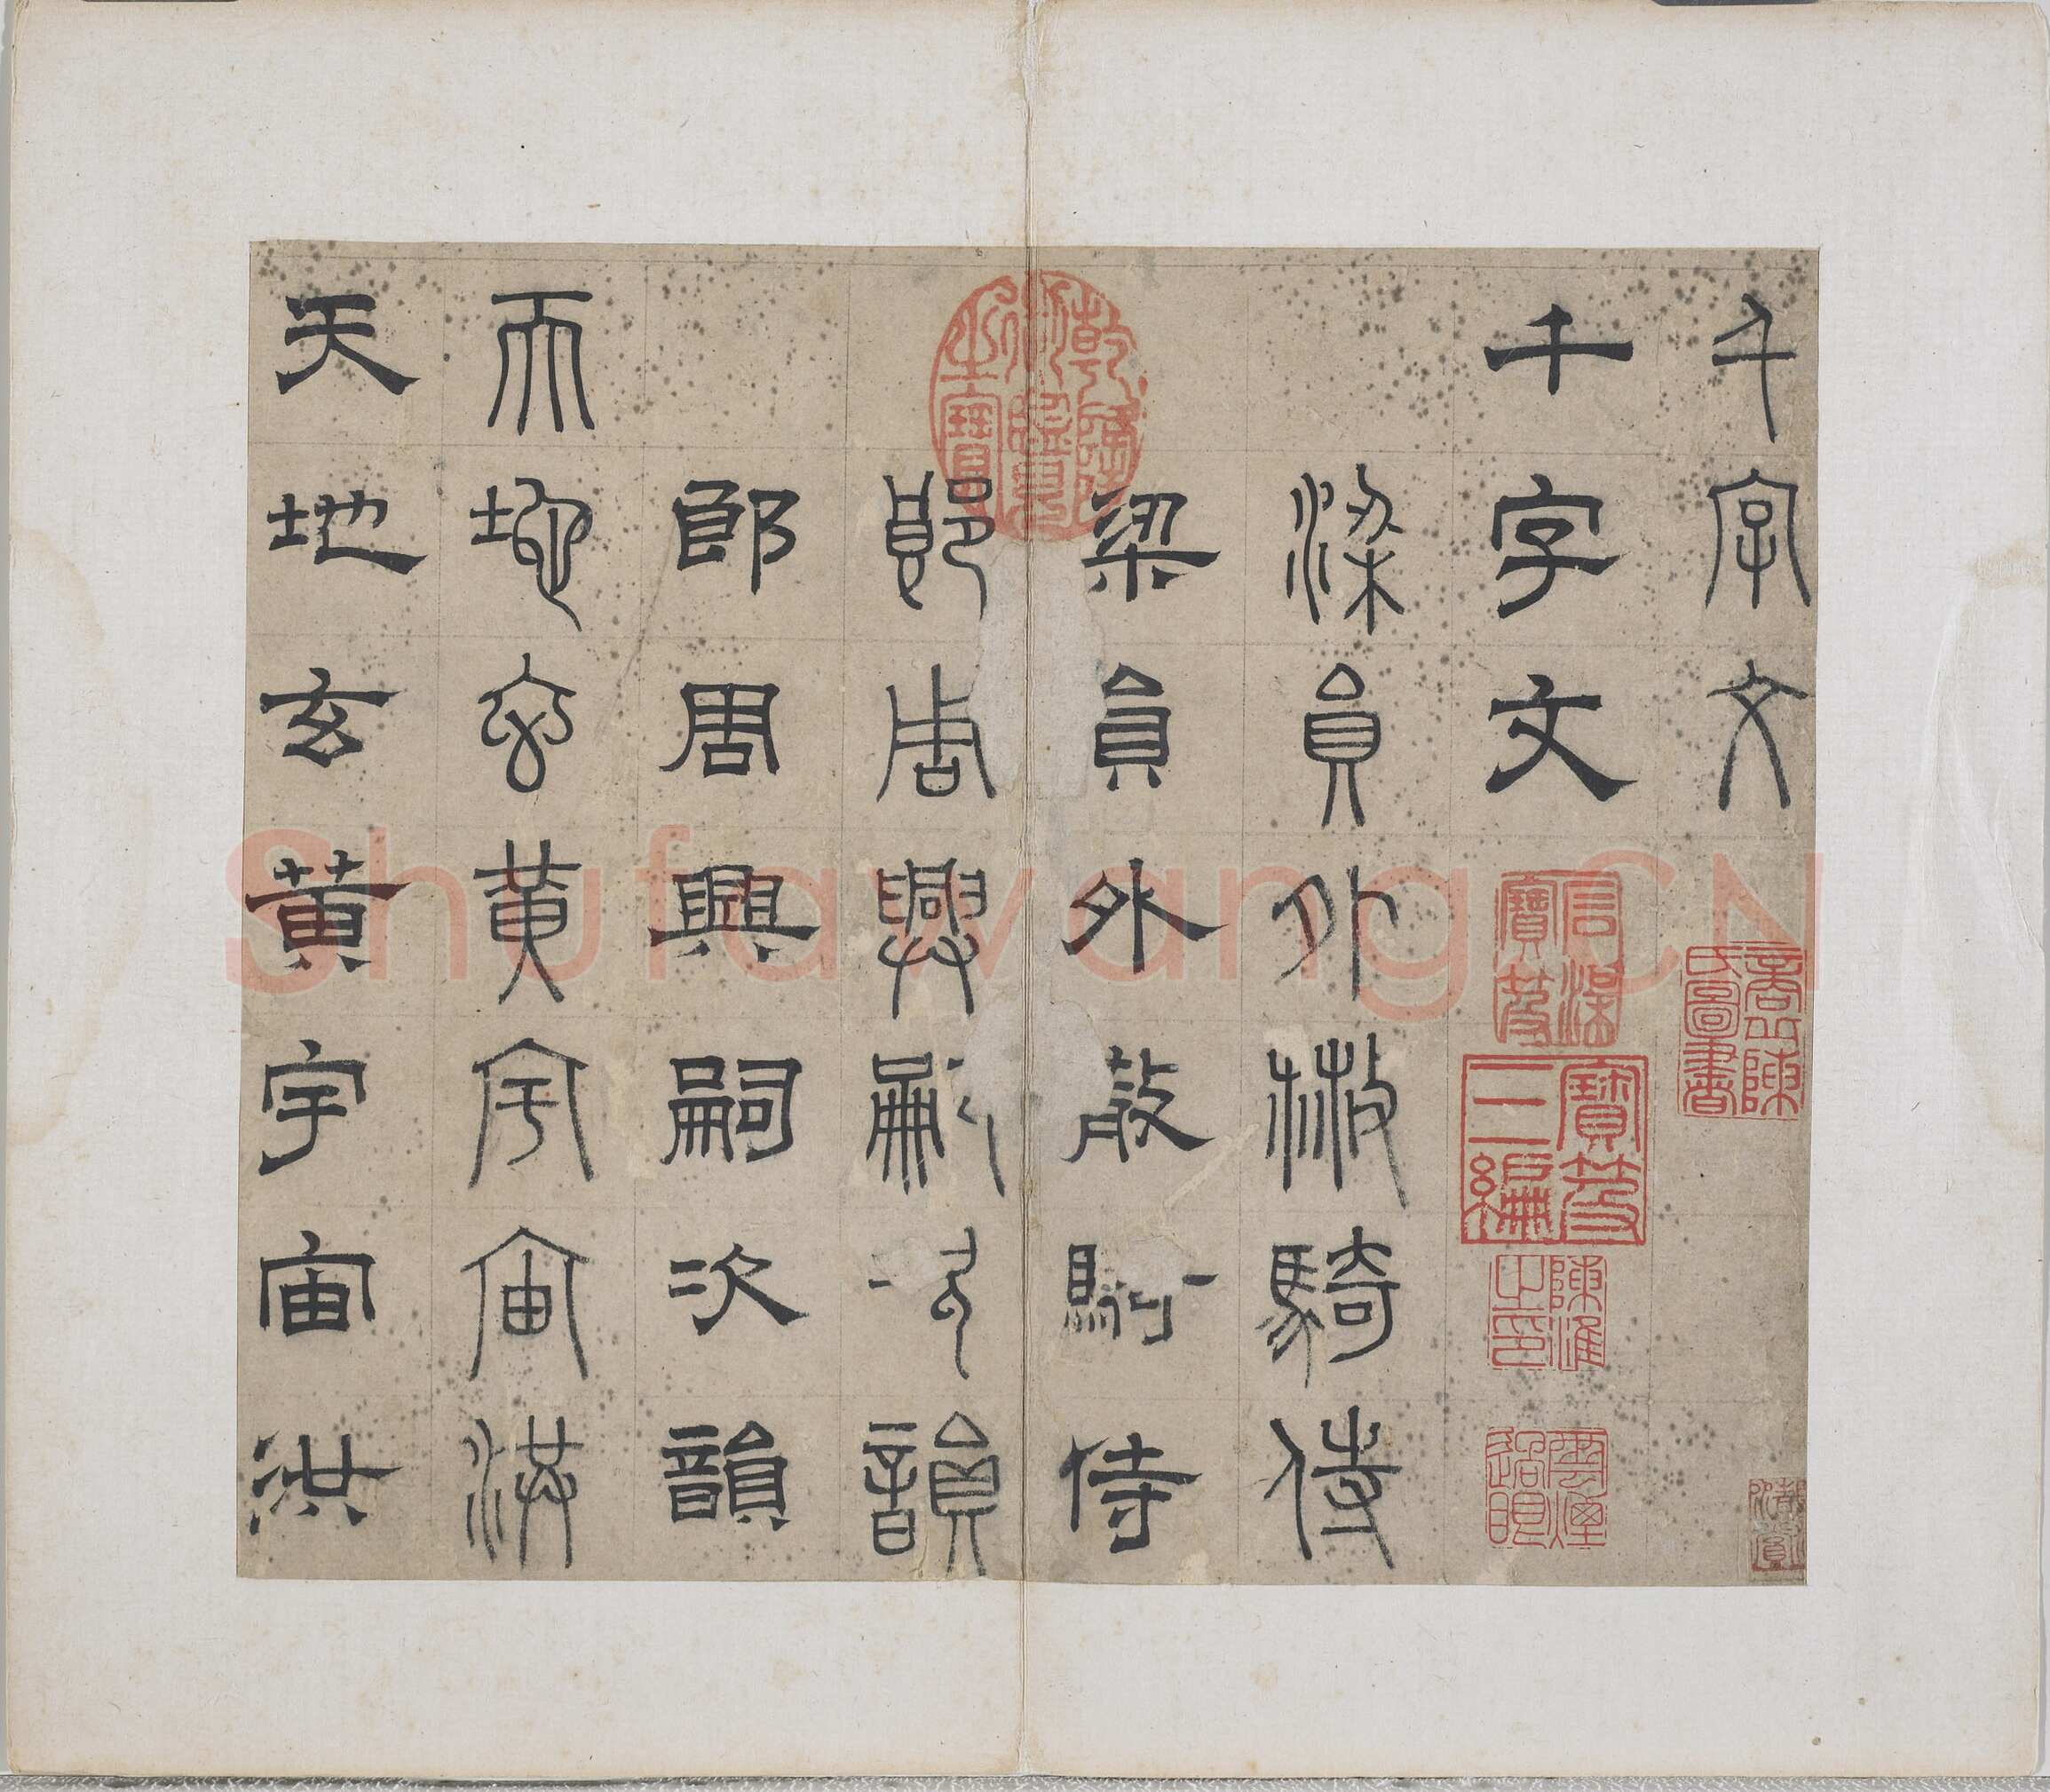 千字文
千字文
梁員外散騎侍
梁員外散騎侍
郎周興嗣次韻
郎周興嗣次韻
天地玄黃宇宙洪
天地玄黃宇宙洪
乾隆御覽之寶
寶笈三編
陳淮之印
雲煙過眼
Shufawang.CN